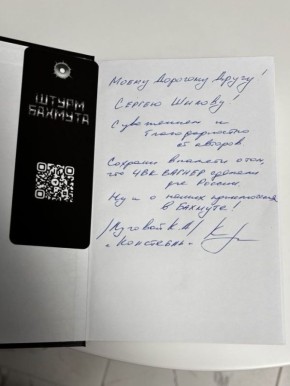 ШТУРМ
БАХМУТА
Моему Дорогому Другу!
Сергею Шилову!
С уважением и
благодарностью
от авторов
Сохрани в памяти о том,
что ЧВК ВАГНЕР сделали
для России.
Ну и о наших приключениях
в Бахмуте!
/Луговой К.А/
"Констебль"